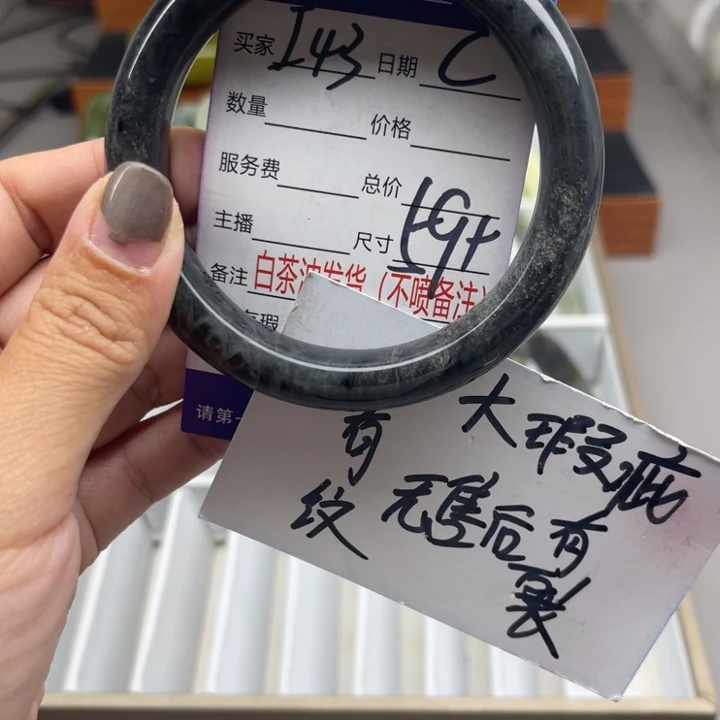 买家 I43 日期
数量 价格
服务费 总价
主播 尺寸 59+
备注 白茶 发货（不喷备注）
瑕
请第一
大瑕疵
有 无售后有
纹 裂